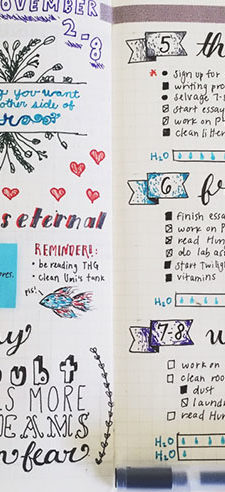 NOVEMBER
2-8
g you want
other side of
s eternal
REMINDER!:
• be reading THG
• clean Umi's tank
pls!
oubt
S MORE
EAMS
n fear
5 th
sign up for
writing pro
selvage 7-
start essay
work on pl
clean litter
H₂O
6 f
finish essa
work on P
read Hun
do lab as
start Twilig
vitamins
H₂O
7-8 w
work on
clean roo
dust
laund
read Hu
H₂O
H₂O